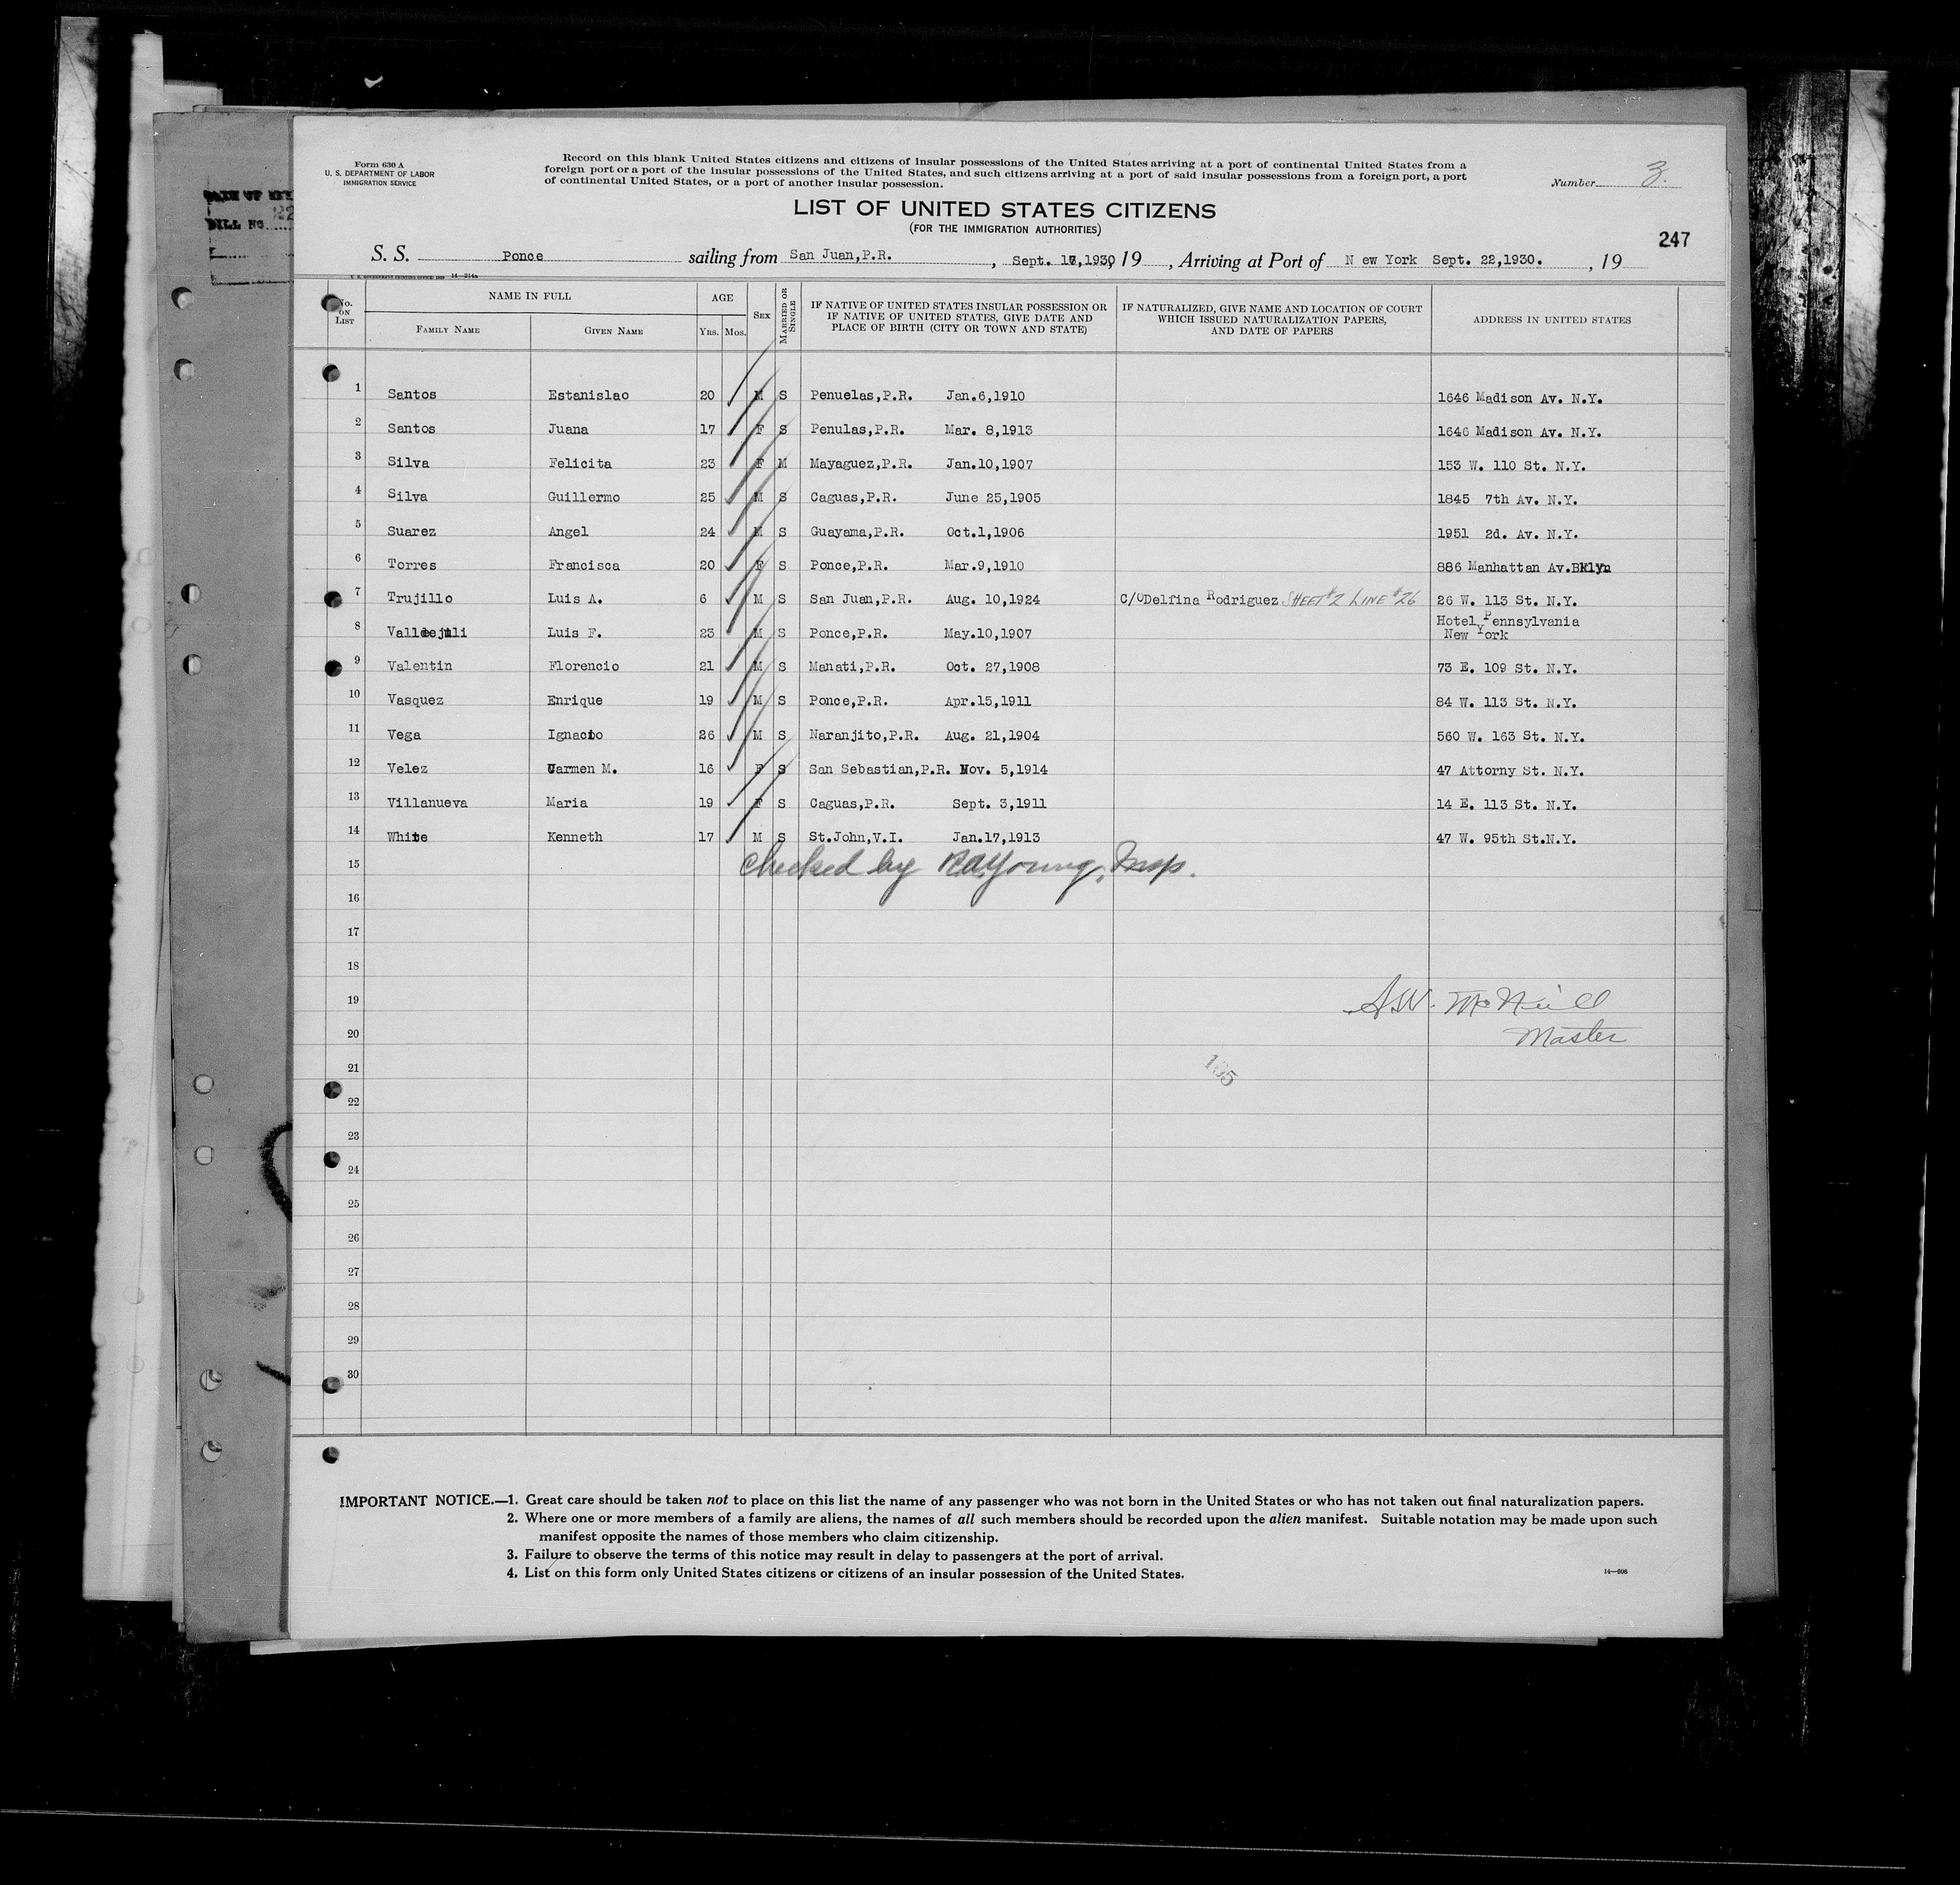 Form 630 A
U. S. DEPARTMENT OF LABOR
IMMIGRATION SERVICE
Record on this blank United States citizens and citizens of insular possessions of the United States arriving at a port of continental United States from a
foreign port or a port of the insular possessions of the United States, and such citizens arriving at a port of said insular possessions from a foreign port, a port
of continental United States, or a port of another insular possession.
Number 3.
LIST OF UNITED STATES CITIZENS
(FOR THE IMMIGRATION AUTHORITIES)
247
BILL NO.
S. S. Ponce sailing from San Juan,P.R. , Sept. 1,1930, 19 , Arriving at Port of N ew York Sept. 22,1930. , 19
No. ON LIST
NAME IN FULL
FAMILY NAME GIVEN NAME
AGE
YRS. MOS.
SEX
MARRIED OR SINGLE
IF NATIVE OF UNITED STATES INSULAR POSSESSION OR
IF NATIVE OF UNITED STATES, GIVE DATE AND
PLACE OF BIRTH (CITY OR TOWN AND STATE)
IF NATURALIZED, GIVE NAME AND LOCATION OF COURT
WHICH ISSUED NATURALIZATION PAPERS,
AND DATE OF PAPERS
ADDRESS IN UNITED STATES
1 Santos Estanislao 20 M S Penuelas,P.R. Jan.6,1910 1646 Madison Av. N.Y.
2 Santos Juana 17 F S Penulas,P.R. Mar. 8,1913 1646 Madison Av. N.Y.
3 Silva Felicita 23 F M Mayaguez,P.R. Jan.10,1907 153 W. 110 St. N.Y.
4 Silva Guillermo 25 M S Caguas,P.R. June 25,1905 1845 7th Av. N.Y.
5 Suarez Angel 24 M S Guayama,P.R. Oct.1,1906 1951 2d. Av. N.Y.
6 Torres Francisca 20 F S Ponce,P.R. Mar.9,1910 886 Manhattan Av.Bklyn
7 Trujillo Luis A. 6 M S San Juan,P.R. Aug. 10,1924 C/O Delfina Rodriguez SHEET #2 LINE #26 26 W. 113 St. N.Y.
8 Luis F. 23 M S Ponce,P.R. May.10,1907 Hotel Pennsylvania
New York
9 Valentin Florencio 21 M S Manati,P.R. Oct. 27,1908 73 E. 109 St. N.Y.
10 Vasquez Enrique 19 M S Ponce,P.R. Apr.15,1911 84 W. 113 St. N.Y.
11 Vega Ignacio 26 M S Naranjito,P.R. Aug. 21,1904 560 W. 163 St. N.Y.
12 Velez Carmen M. 16 F S San Sebastian,P.R. Nov. 5,1914 47 Attorny St. N.Y.
13 Villanueva Maria 19 F S Caguas,P.R. Sept. 3,1911 14 E. 113 St. N.Y.
14 White Kenneth 17 M S St.John,V.I. Jan.17,1913 47 W. 95th St.N.Y.
15 Checked by Young, Insp.
16
17
18
19 McNeill
20 Master
21 105
22
23
24
25
26
27
28
29
30
IMPORTANT NOTICE.—1. Great care should be taken not to place on this list the name of any passenger who was not born in the United States or who has not taken out final naturalization papers.
2. Where one or more members of a family are aliens, the names of all such members should be recorded upon the alien manifest. Suitable notation may be made upon such
manifest opposite the names of those members who claim citizenship.
3. Failure to observe the terms of this notice may result in delay to passengers at the port of arrival.
4. List on this form only United States citizens or citizens of an insular possession of the United States.